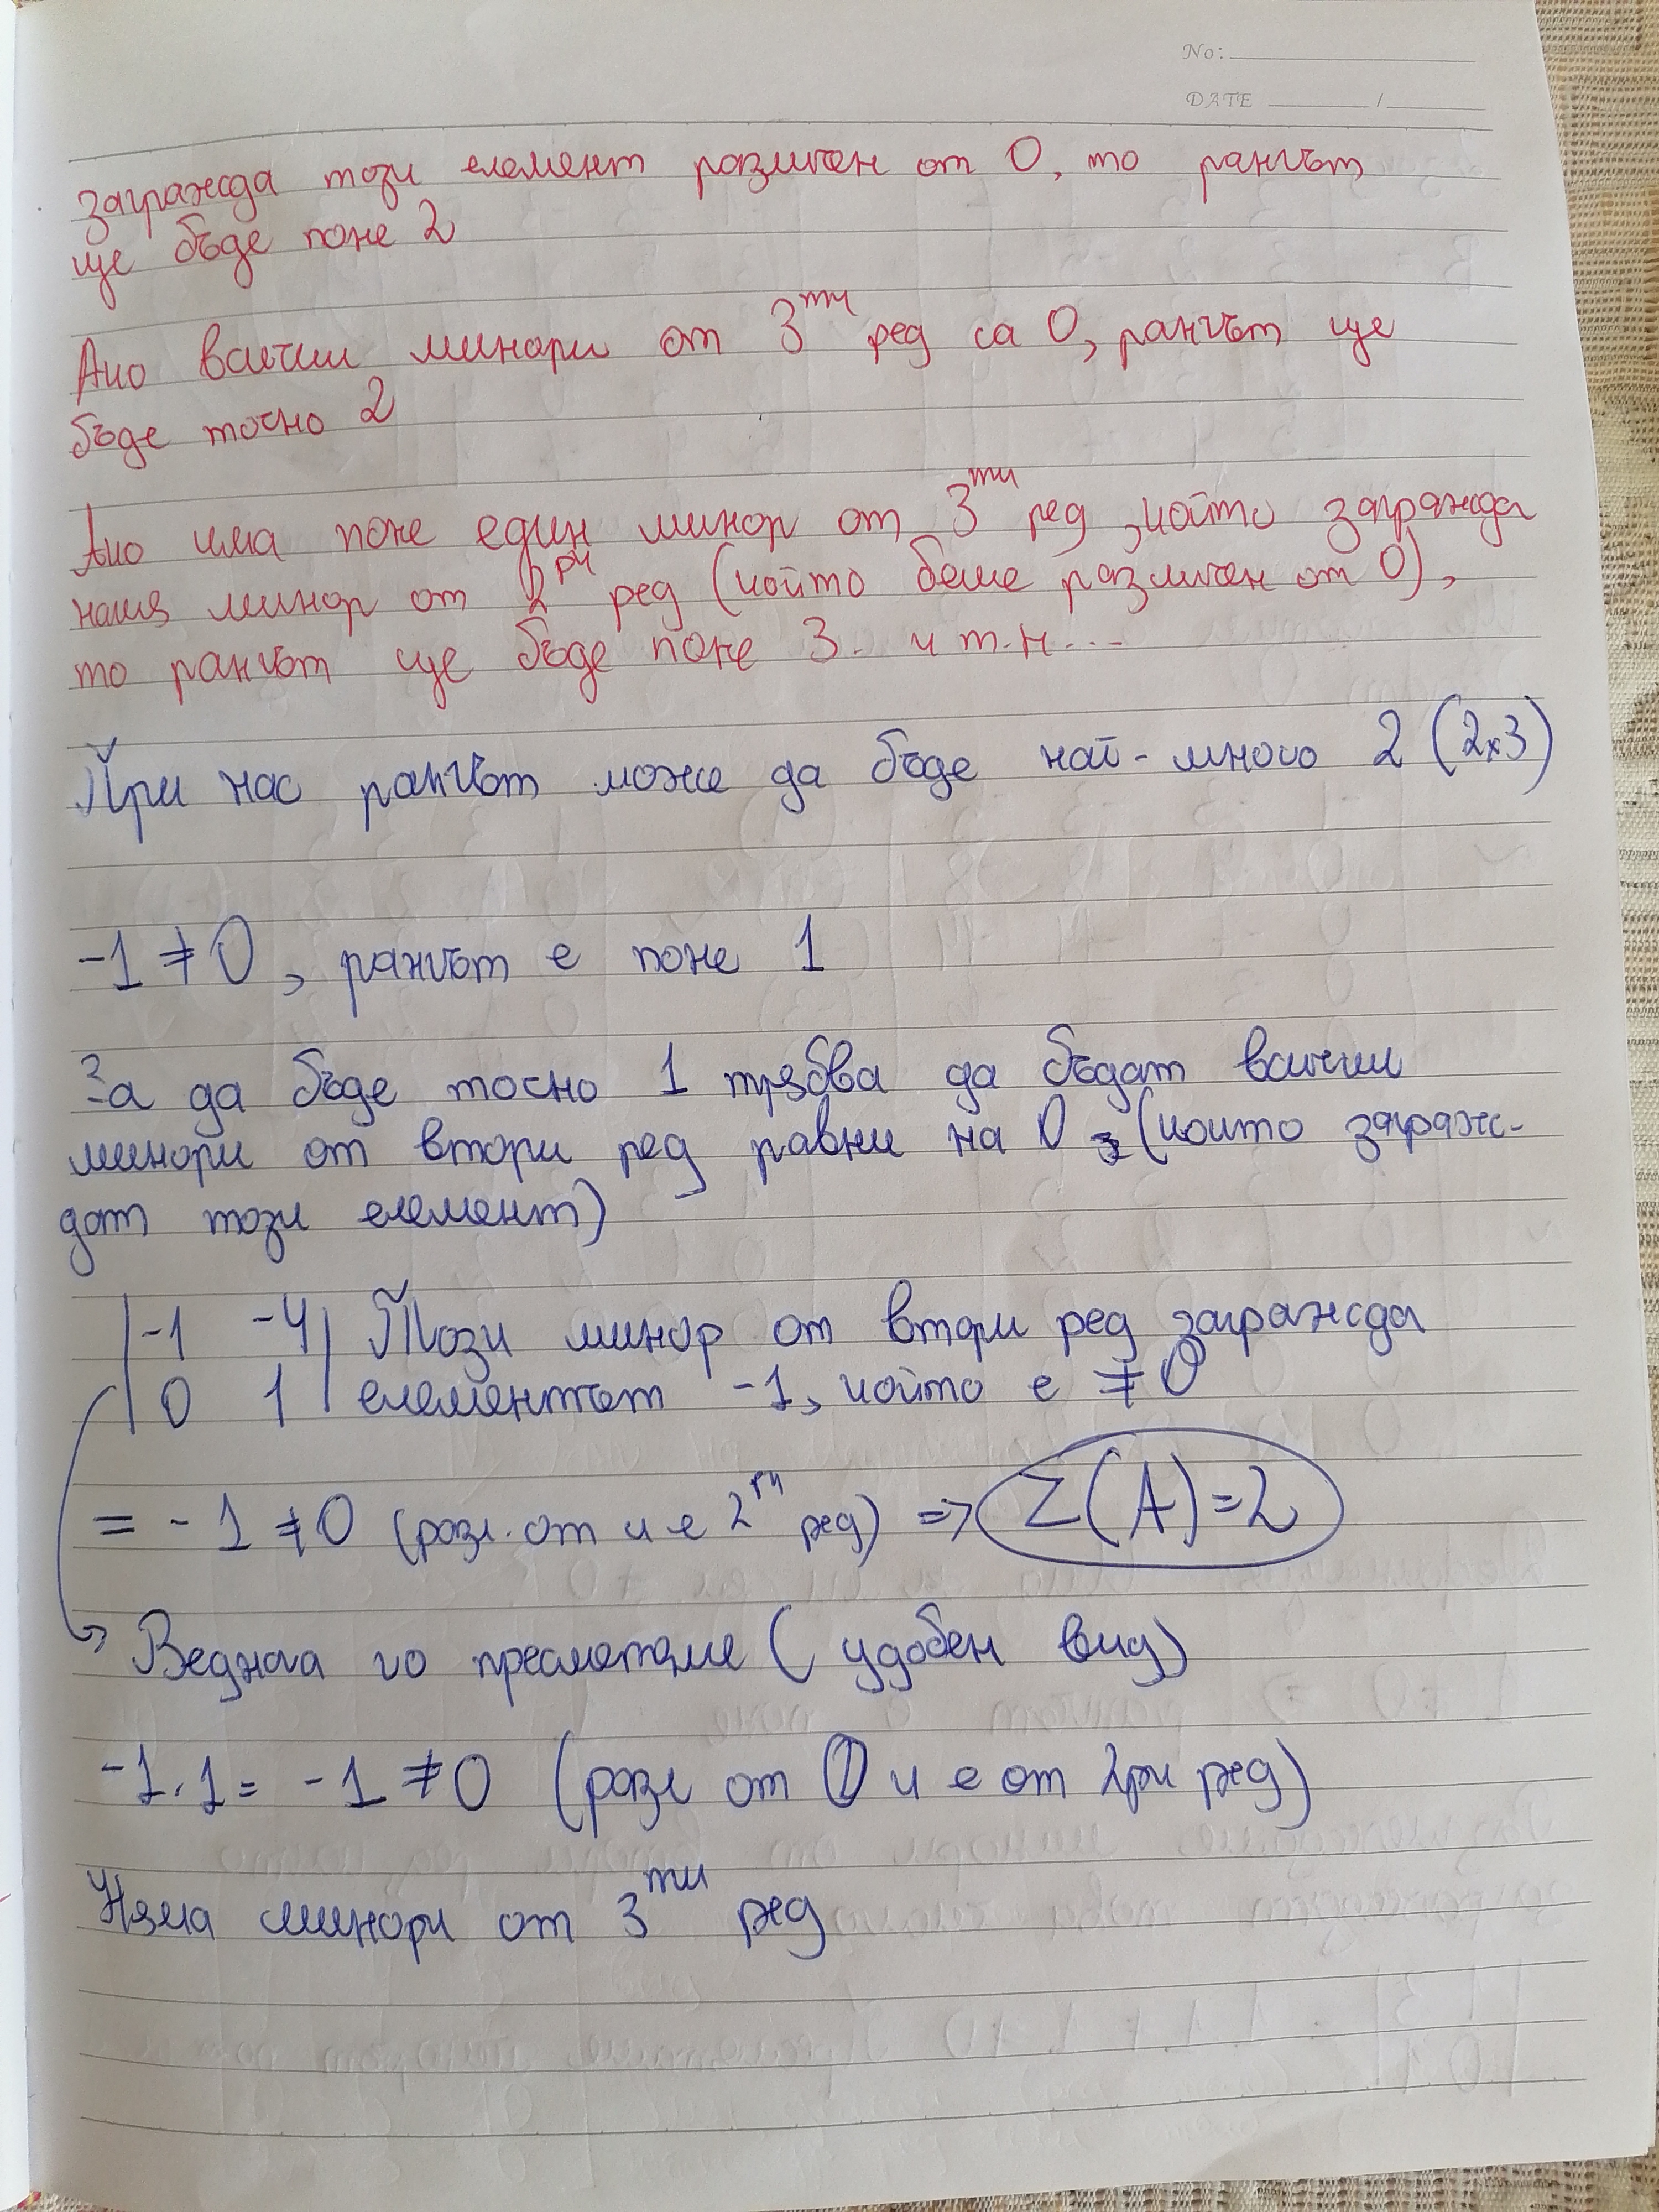 No:
DATE /
загражда този елемент различен от 0, то рангът
ще бъде поне 2
Ако всички минори от 3ти ред са 0, рангът ще
бъде точно 2
Ако има поне един минор от 3ти ред, който загражда
нашия минор от 2ри ред (който беше различен от 0),
то рангът ще бъде поне 3. и т.н...
При нас рангът може да бъде най-много 2 (2x3)
-1 ≠ 0, рангът е поне 1
За да бъде точно 1 трябва да бъдат всички
минори от втори ред равни на 0 (които загражс-
дат този елемент)
|-1 -4| Този минор от втори ред загражда
|0 1| елементът -1, който е ≠ 0
= -1 ≠ 0 (разл. от и е 2ри ред) => Σ(A)=2
Веднага го пресмятаме (удобен вид)
-1.1 = -1 ≠ 0 (разл от 0 и е от 2ри ред)
Няма минори от 3ти ред